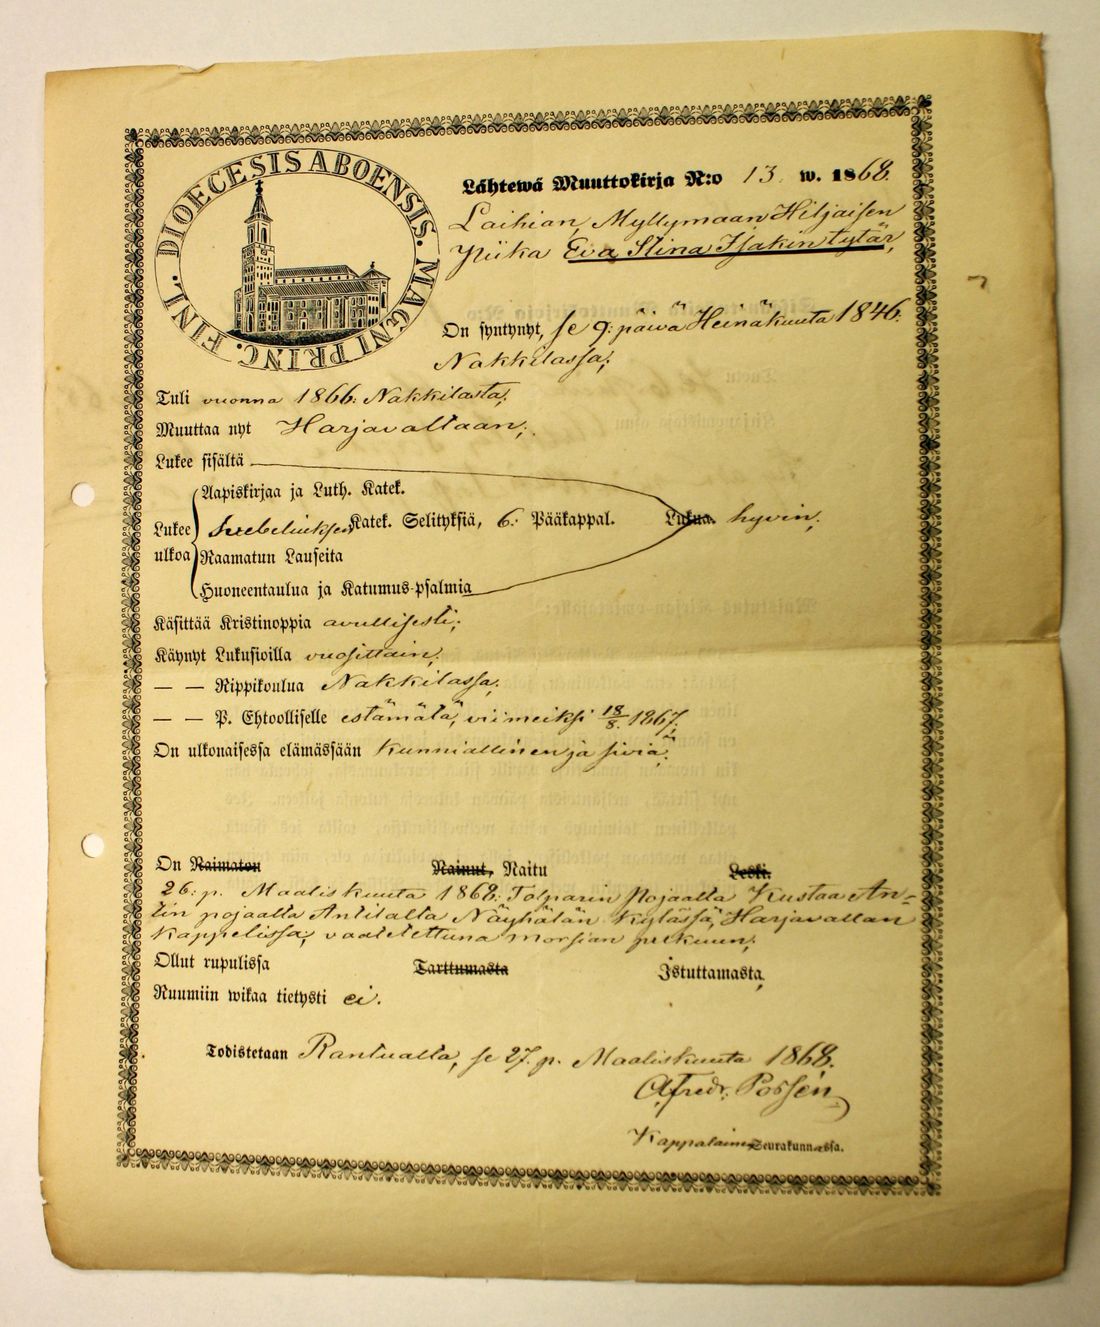 DIOECESIS ABOENSIS. MAGNI PRINC. FINL.
Lähtewä Muuttokirja N:o 13. w. 1868.
Laihian, Myllymaan Hiljaisen
Piika Eva Stina Isakin tytär,
On syntynyt, se 9: päivä Heinäkuuta 1846.
Nakkilassa;
Tuli vuonna 1866: Nakkilasta;
Muuttaa nyt Harjavaltaan;
Lukee sisältä
Aapiskirjaa ja Luth. Katek.
Lukee Svebeliuksen Katek. Selityksiä, 6: Pääkappal. Lukua hyvin;
ulkoa Raamatun Lauseita
Huoneentaulua ja Katumus-psalmia
Käsittää Kristinoppia avullisesti;
Käynyt Lukusioilla vuosittain;
— — Rippikoulua Nakkilassa;
— — P. Ehtoolliselle estämätä, viimeiksi 18/8. 1867;
On ulkonaisessa elämässään kunniallinen ja siviä;
On Naimaton Nainut, Naitu Leski.
26: p. Maaliskuuta 1868: Torparin Pojaalta Kustaa An-
tin pojaalta Antilalta Näyhälän kylässä, Harjavallan
kappelissa; vaatetettuna morsian
Ollut rupulissa Tarttumasta Istuttamasta,
Ruumiin wikaa tietysti ei.
Todistetaan se 27. p. Maaliskuuta 1868.
Alfredr.
Kappalainen Seurakunnassa.